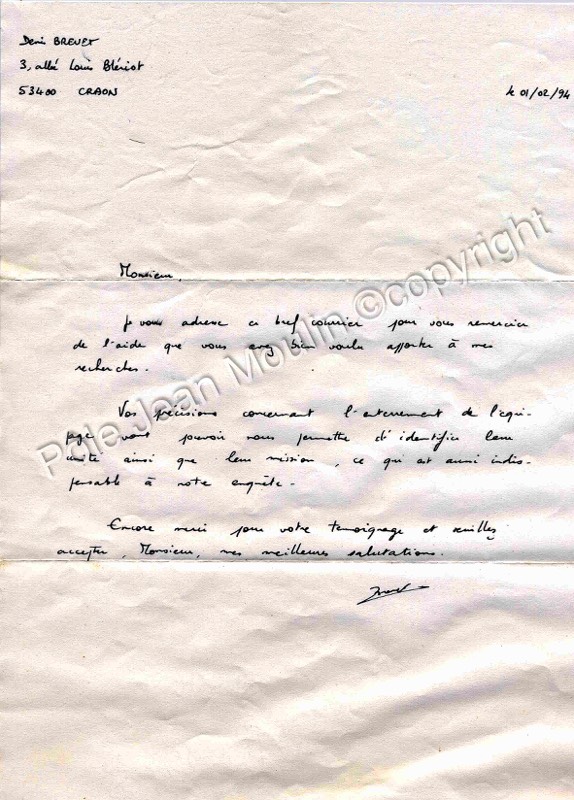 Denis BREVET
3, allée Louis Blériot
53400 CRAON
le 01/02/94
Monsieur,
Je vous adresse ce bref courrier pour vous remercier
de l'aide que vous avez bien voulu apporter à mes
recherches.
Vos précisions concernant l'enterrement de l'équi-
page vont pouvoir nous permettre d'identifier leur
unité ainsi que leur mission, ce qui est aussi indis-
pensable à notre enquête.
Encore merci pour votre témoignage et veuillez
accepter, Monsieur, mes meilleures salutations.
Pôle Jean Moulin ©copyright